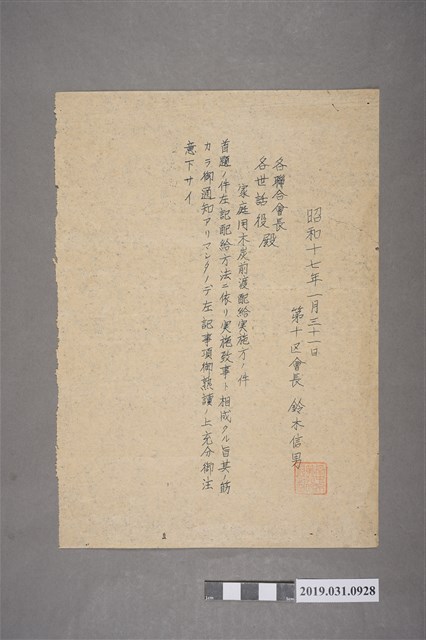 昭和十七年一月三十一日
第十区會長 鈴木信男
各聯合會長
各世話役 殿
家庭用木炭前渡配給実施方ノ件
首題ノ件左記配給方法ニ依リ実施致事ト相成タル旨其ノ筋
カラ御通知アリマシタノデ左記事項御熟讀ノ上充分御注
意下サイ
2019.031.0928